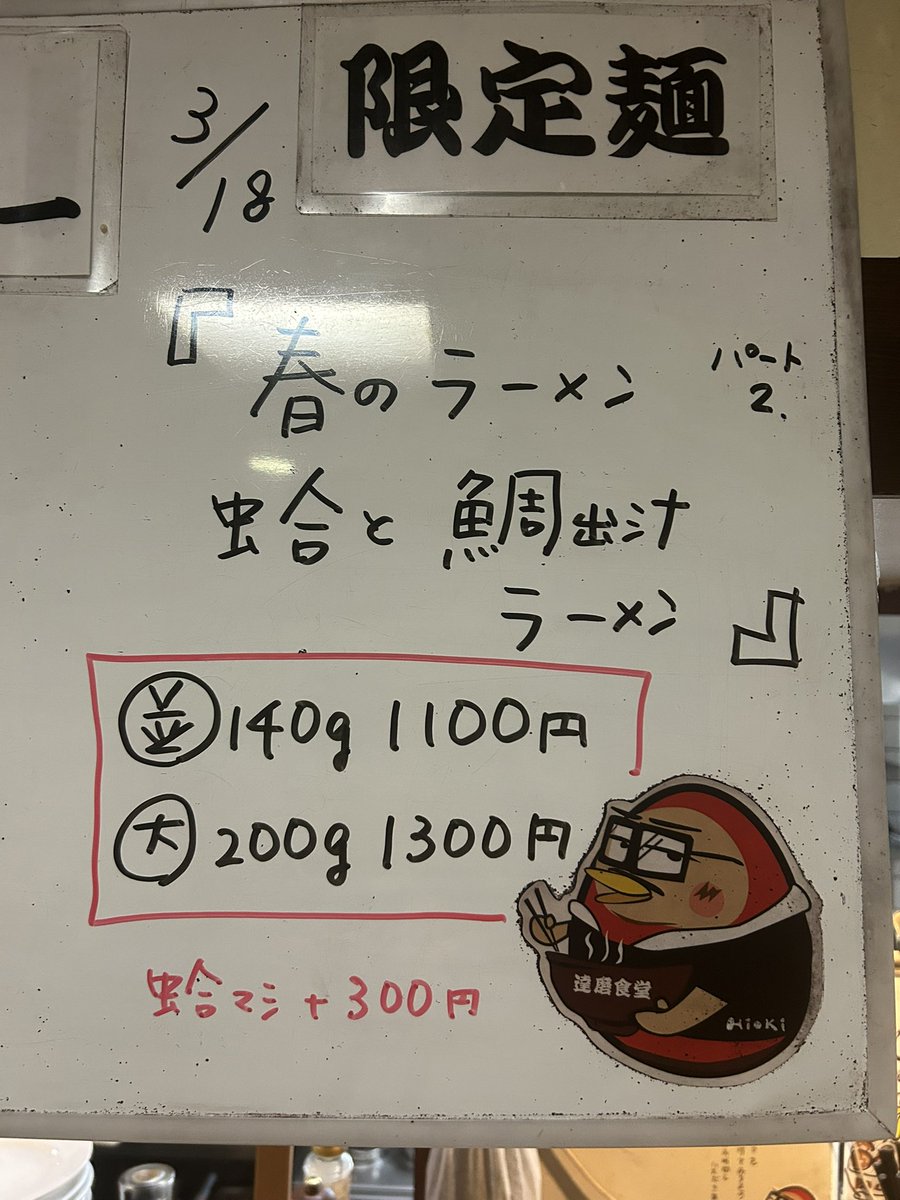 限定麺
3/18
『春のラーメン パート2.
蛤と鯛出汁
ラーメン』
並 140g 1100円
大 200g 1300円
蛤マシ+300円
達磨食堂
HioKi